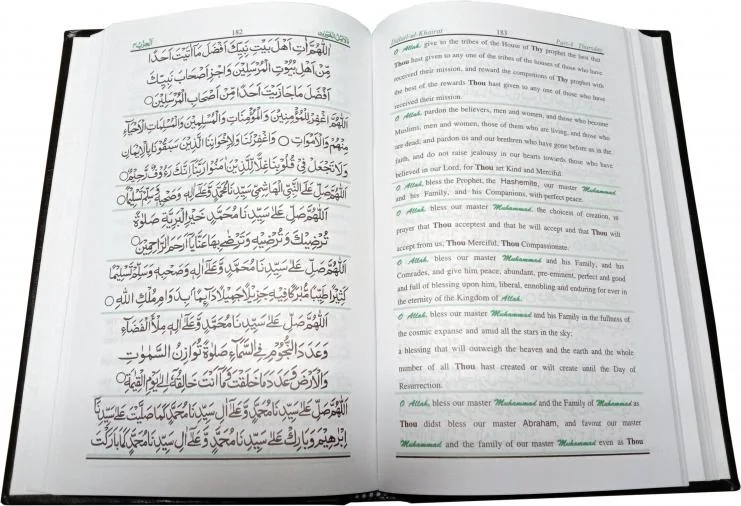 182
اللّٰهُمَّ اٰتِ اَهْلَ بَيْتِ نَبِيِّكَ اَفْضَلَ مَا اٰتَيْتَ اَحَدًا
مِّنْ اَهْلِ بُيُوْتِ الْمُرْسَلِيْنَ وَاجْزِ اَصْحَابَ نَبِيِّكَ
اَفْضَلَ مَا جَازَيْتَ اَحَدًا مِّنْ اَصْحَابِ الْمُرْسَلِيْنَ
اَللّٰهُمَّ اغْفِرْ لِلْمُؤْمِنِيْنَ وَالْمُؤْمِنَاتِ وَالْمُسْلِمِيْنَ وَالْمُسْلِمَاتِ الْاَحْيَاءِ
مِنْهُمْ وَالْاَمْوَاتِ وَاغْفِرْلَنَا وَلِاِخْوَانِنَا الَّذِيْنَ سَبَقُوْنَا بِالْاِيْمَانِ
وَلَا تَجْعَلْ فِيْ قُلُوْبِنَا غِلًّا لِّلَّذِيْنَ اٰمَنُوْا رَبَّنَا اِنَّكَ رَءُوْفٌ رَّحِيْمٌ
اَللّٰهُمَّ صَلِّ عَلَى النَّبِيِّ الْهَاشِمِيِّ سَيِّدِنَا مُحَمَّدٍ وَّعَلٰى اٰلِهٖ وَصَحْبِهٖ وَسَلِّمْ تَسْلِيْمًا
اَللّٰهُمَّ صَلِّ عَلٰى سَيِّدِنَا مُحَمَّدٍ خَيْرِ الْبَرِيَّةِ صَلٰوةً
تُرْضِيْكَ وَتُرْضِيْهِ وَتَرْضٰى بِهَا عَنَّا يَا اَرْحَمَ الرَّاحِمِيْنَ
اَللّٰهُمَّ صَلِّ عَلٰى سَيِّدِنَا مُحَمَّدٍ وَّعَلٰى اٰلِهٖ وَصَحْبِهٖ وَسَلِّمْ تَسْلِيْمًا
كَثِيْرًا طَيِّبًا مُّبَارَكًا فِيْهِ جَزِيْلًا جَمِيْلًا دَائِمًا بِدَوَامِ مُلْكِ اللّٰهِ
اَللّٰهُمَّ صَلِّ عَلٰى سَيِّدِنَا مُحَمَّدٍ وَّعَلٰى اٰلِهٖ مِلْأَ الْفَضَاءِ
وَعَدَدَ النُّجُوْمِ فِي السَّمَاءِ صَلٰوةً تُوَازِنُ السَّمٰوٰتِ
وَالْاَرْضَ وَعَدَدَ مَا خَلَقْتَ وَمَا اَنْتَ خَالِقُهٗ اِلٰى يَوْمِ الْقِيٰمَةِ
اَللّٰهُمَّ صَلِّ عَلٰى سَيِّدِنَا مُحَمَّدٍ وَّعَلٰى اٰلِ سَيِّدِنَا مُحَمَّدٍ كَمَا صَلَّيْتَ عَلٰى سَيِّدِنَا
اِبْرٰهِيْمَ وَبَارِكْ عَلٰى سَيِّدِنَا مُحَمَّدٍ وَّعَلٰى اٰلِ سَيِّدِنَا مُحَمَّدٍ كَمَا بَارَكْتَ
Dalail-ul-Khairat 183 Part-4, Thursday
O Allah, give to the tribes of the House of Thy prophet the best that
Thou hast given to any one of the tribes of the houses of those who have
received their mission, and reward the companions of Thy prophet with
the best of the rewards Thou hast given to any one of those who have
received their mission.
O Allah, pardon the believers, men and women, and those who become
Muslims, men and women, those of them who are living, and those who
are dead; and pardon us and our brethren who have gone before as in the
faith, and do not raise jealousy in our hearts towards those who have
believed in our Lord, for Thou art Kind and Merciful.
O Allah, bless the Prophet, the Hashemite, our master Muhammad
and his Family, and his Companions, with perfect peace.
O Allah, bless our master Muhammad, the choicest of creation, a
prayer that Thou acceptest and that he will accept and that Thou will
accept from us, Thou Merciful, Thou Compassionate.
O Allah, bless our master Muhammad and his Family, and his
Comrades, and give him peace, abundant, pre-eminent, perfect and good
and full of blessing upon him, liberal, ennobling and enduring for ever in
the eternity of the Kingdom of Allah.
O Allah, bless our master Muhammad and his Family in the fullness of
the cosmic expanse and amid all the stars in the sky;
a blessing that will outweigh the heaven and the earth and the whole
number of all Thou hast created or will create until the Day of
Resurrection.
O Allah, bless our master Muhammad and the Family of Muhammad as
Thou didst bless our master Abraham, and favour our master
Muhammad and the family of our master Muhammad even as Thou